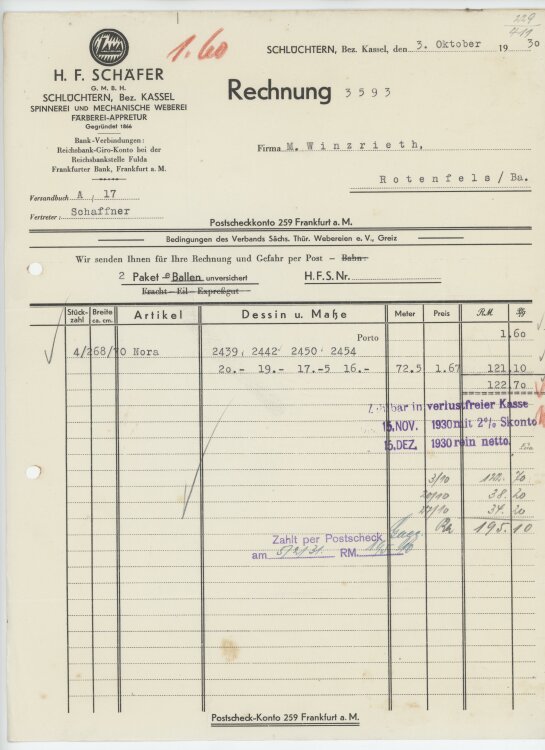 229
411
1.60
SCHLÜCHTERN, Bez. Kassel, den 3. Oktober 1930
H. F. SCHÄFER
G. M. B. H.
SCHLÜCHTERN, Bez. KASSEL
SPINNEREI UND MECHANISCHE WEBEREI
FÄRBEREI-APPRETUR
Gegründet 1866
Rechnung 3593
Bank-Verbindungen:
Reichsbank-Giro-Konto bei der
Reichsbankstelle Fulda
Frankfurter Bank, Frankfurt a. M.
Firma M. Winzrieth,
Rotenfels/Ba.
Versandbuch A, 17
Vertreter: Schaffner
Postscheckkonto 259 Frankfurt a. M.
Bedingungen des Verbands Sächs. Thür. Webereien e. V., Greiz
Wir senden Ihnen für Ihre Rechnung und Gefahr per Post – Bahn.
2 Paket Ballen unversichert H.F.S.Nr.
Fracht – Eil – Expreßgut
Stück-zahl Breite ca. cm. Artikel Dessin u. Maße Meter Preis RM
Porto 1.60
4/268/70 Nora 2439, 2442 2450 2454
20.- 19.- 17.-5 16.- 72.5 1.67 121.10
122.70
Zahlbar in verlustfreier Kasse
15.NOV. 1930 mit 2% Skonto
15.DEZ. 1930 rein netto.
3/10 122.70
20/10 38.20
27/10 34.20
195.10
Zahlt per Postscheck
am 5/2/31 RM. 195.10
Postscheck-Konto 259 Frankfurt a. M.